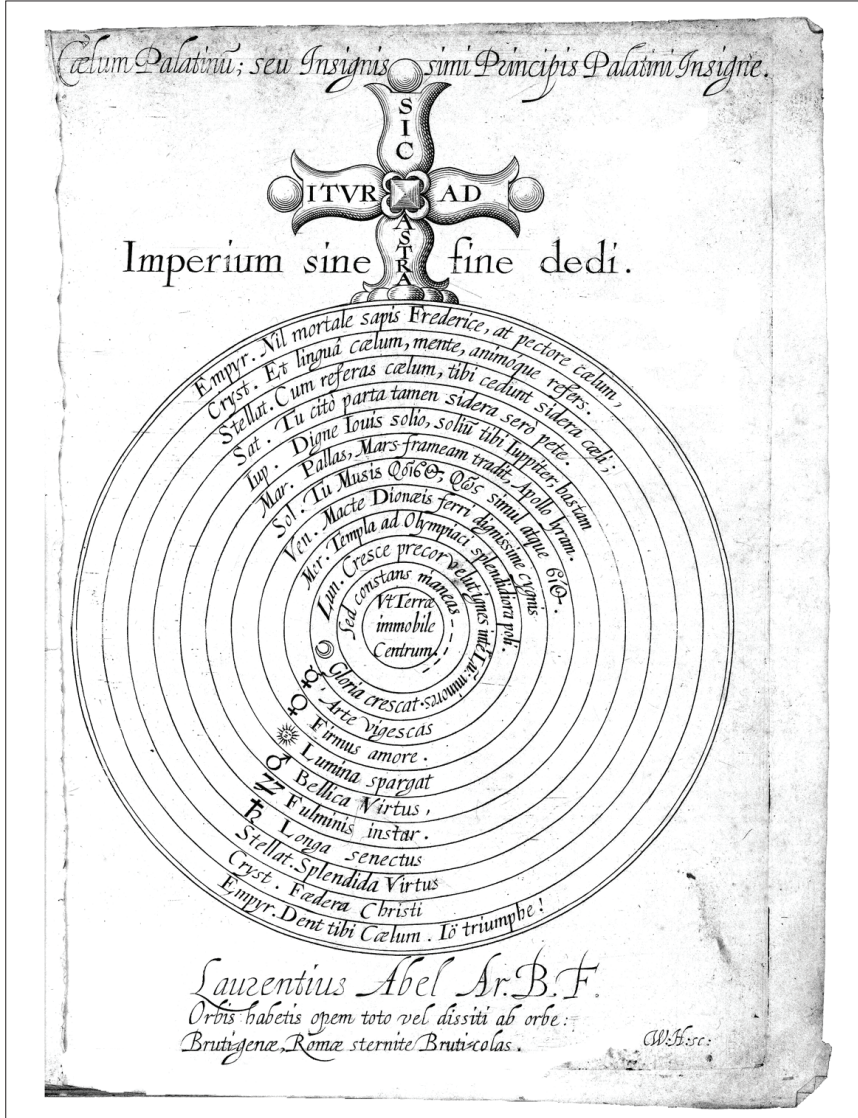 Cælum Palatinū; seu Insignissimi Principis Palatini Insigne.
SIC
ITVR AD
ASTRA
Imperium sine fine dedi.
Empyr. Nil mortale sapis Frederice, at pectore cælum,
Cryst. Et linguâ cælum, mente, animóque refers.
Stellat. Cum referas cælum, tibi cedunt sidera cæli;
Sat. Tu citò parta tamen sidera serò pete.
Iup. Digne Iouis solio, soliū tibi Iuppiter, hastam
Mar. Pallas, Mars frameam tradit, Apollo lyram.
Sol. Tu Musis simul atque
Ven. Macte Dionæis ferri dignissime cygnis
Mer. Templa ad Olympiaci splendidiora poli.
Lun. Cresce precor velut ignes inter Lu: minores
Sed constans maneas
Vt Terræ
immobile
Centrum.
☽ Gloria crescat.
☿ Arte vigescas
♀ Firmus amore.
☉ Lumina spargat
♂ Bellica Virtus,
♃ Fulminis instar.
♄ Longa senectus
Stellat. Splendida Virtus
Cryst. Fædera Christi
Empyr. Dent tibi Cælum. Iö triumphe!
Laurentius Abel Ar. B. F.
Orbis habetis opem toto vel dissiti ab orbe:
Bruti-genæ, Romæ sternite Bruti-colas.
W:H:sc: